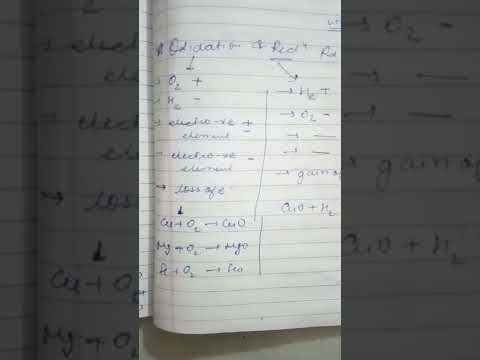 Oxidation & Redn
→ O2 +
→ H2 -
→ electro-ve element +
- electro-ve element -
→ loss of e-
Cu + O2 → CuO
Mg + O2 → MgO
Fe + O2 → FeO
→ H2 +
→ O2 -
→ —
→ —
→ gain of
CuO + H2